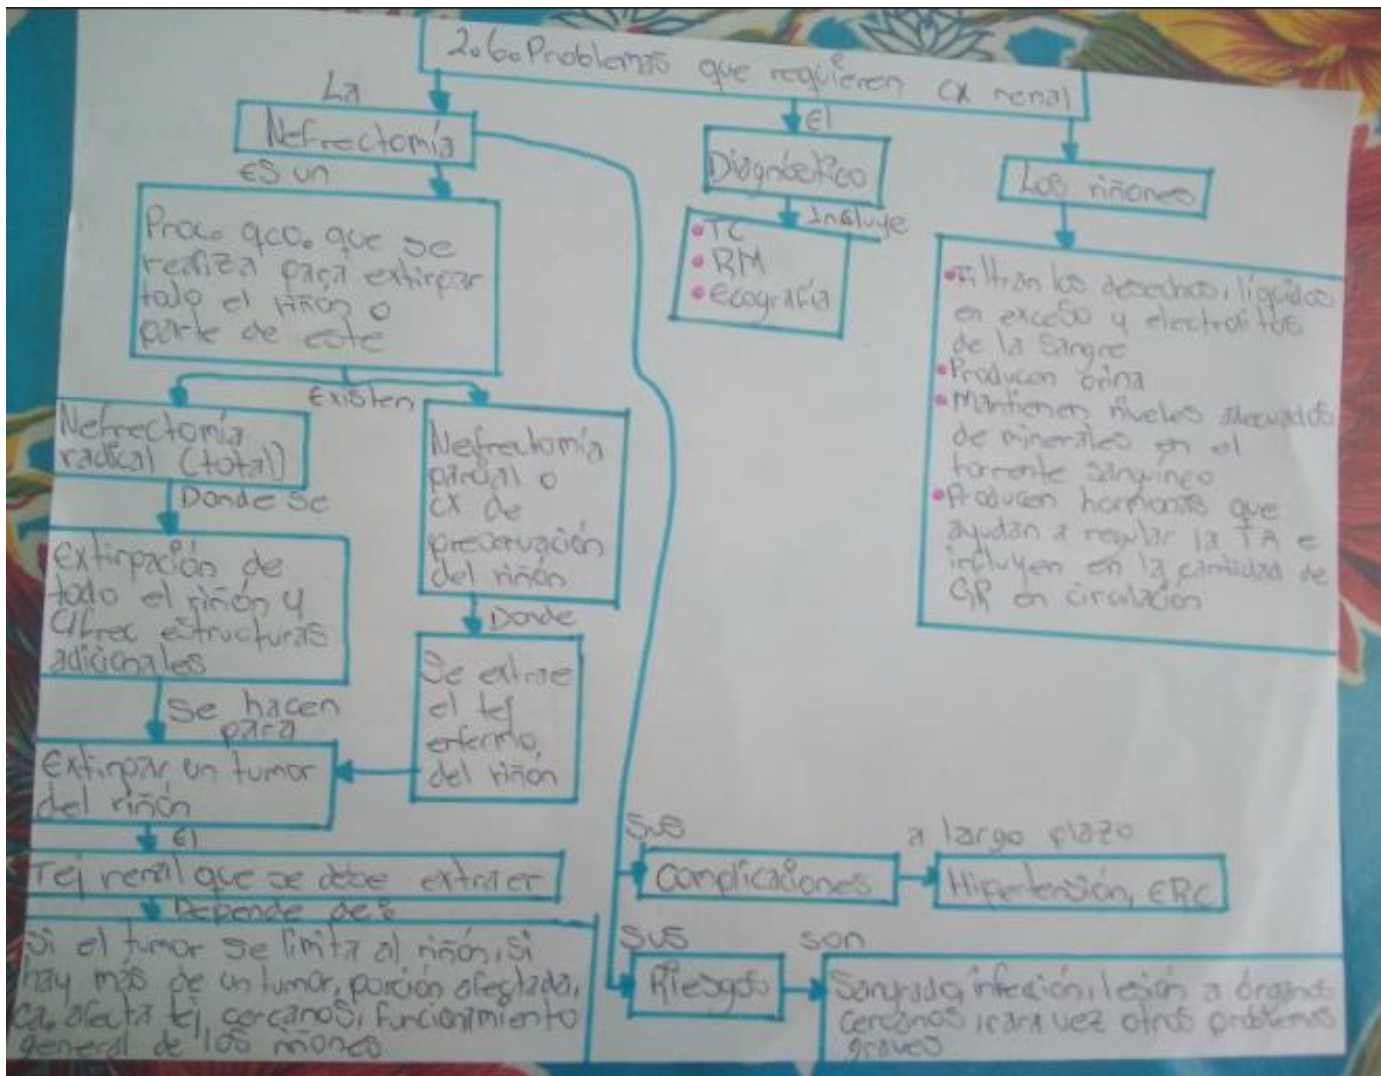 2.6. Problemas que requieren cx renal
La
Nefrectomía
es un
Proc. qco. que se
realiza para extirpar
todo el riñón o
parte de este
Existen
Nefrectomía
radical (total)
Donde se
Extirpación de
todo el riñón y
c/frec estructuras
adicionales
Se hacen
para
Nefrectomía
parcial o
cx de
preservación
del riñón
Donde
Se extrae
el tej
enfermo,
del riñón
Extirpar un tumor
del riñón
El
Tej renal que se debe extraer
Depende de:
Si el tumor se limita al riñón, si
hay más de un tumor, porción afectada,
ca. afecta tej cercanos, funcionamiento
general de los riñones
El
Diagnóstico
Incluye
• TC
• RM
• Ecografía
Los riñones
• Filtran los desechos, líquidos
en exceso y electrolitos
de la sangre
• Producen orina
• Mantienen niveles adecuados
de minerales en el
torrente sanguíneo
• Producen hormonas que
ayudan a regular la TA e
incluyen en la cantidad de
GR en circulación
Sus
Complicaciones
a largo plazo
Hipertensión, ERC
Sus
Riesgos
son
Sangrado, infección, lesión a órganos
cercanos, rara vez otros problemas
graves